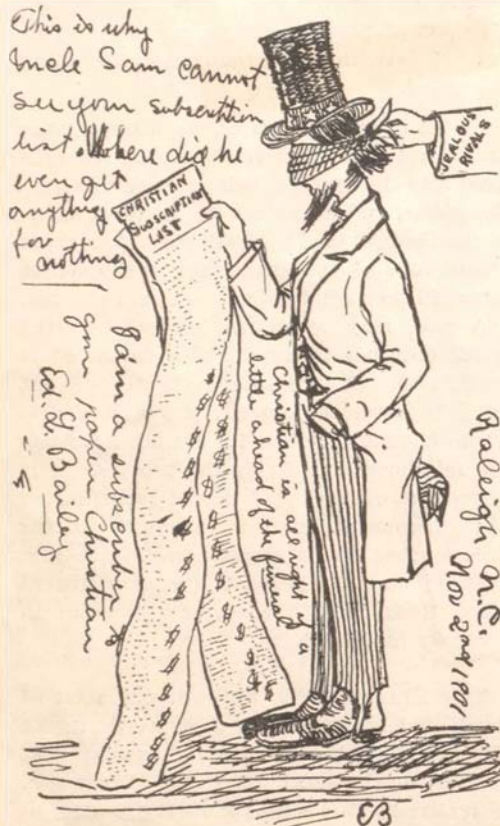 This is why
Uncle Sam cannot
see your subscrition
list. Where did he
ever get
anything
for
nothing
JEALOUS
RIVALS
CHRISTIAN
SUBSCRIPTION
LIST
I am a subscriber to
your paper Christian
Ed. L. Bailey
Christian is all right if a
little ahead of the funeral
Raleigh N.C.
Nov 2nd 1901
EB